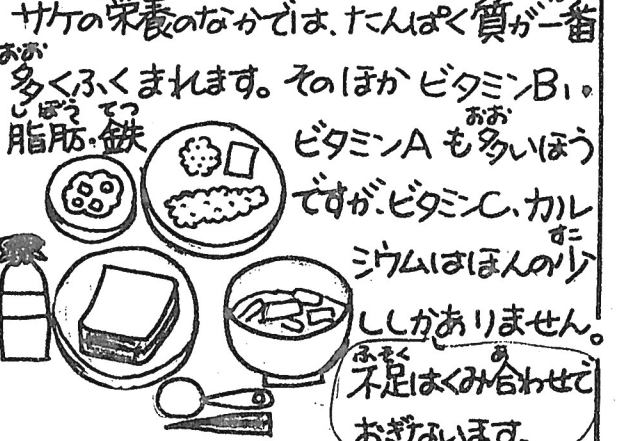 サケの栄養のなかでは、たんぱく質が一番
おお
多くふくまれます。そのほかビタミンB₁・
しぼう てつ
脂肪・鉄
おお
ビタミンAも多いほう
ですが、ビタミンC、カル
すこ
シウムはほんの少
ししかありません。
ふそく あ
不足はくみ合わせで
おぎないます。